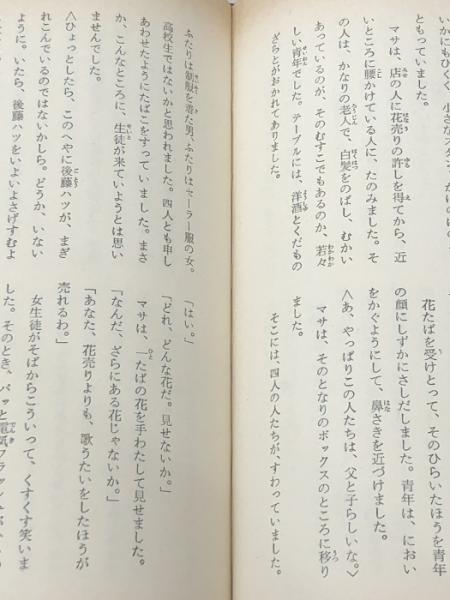 いかにもひくく、小さなスタン
ともっていました。
マサは、店の人に花売りの許しを得てから、近
いところに腰かけている人に、たのみました。そ
の人は、かなりの老人で、白髪をのばし、むかい
あっているのが、そのむすこでもあるのか、若々
しい青年でした。テーブルには、洋酒とくだもの
ざらとがおかれてありました。
花たばを受けとって、そのひらいたほうを青年
の顔にしずかにさしだしました。青年は、におい
をかぐようにして、鼻さきを近づけました。
〈あ、やっぱりこの人たちは、父と子らしいな。〉
マサは、そのとなりのボックスのところに移り
ました。
そこには、四人の人たちが、すわっていました。
ふたりは制服を着た男、ふたりはセーラー服の女。
高校生ではないかと思われました。四人とも申し
あわせたようにたばこをすっていました。まさ
か、こんなところに、生徒が来ていようとは思い
ませんでした。
〈ひょっとしたら、このへやに後藤ハツが、まぎ
れこんでいるのではないかしら。どうか、いない
ように。いたら、後藤ハツをいよいよさげすむよ
「はい。」
「どれ、どんな花だ。見せないか。」
マサは、一たばの花を手わたして見せました。
「なんだ、ざらにある花じゃないか。」
「あなた、花売りよりも、歌うたいをしたほうが
売れるわ。」
女生徒がそばからこういって、くすくす笑いま
した。そのとき、パッと電気フラッシュが